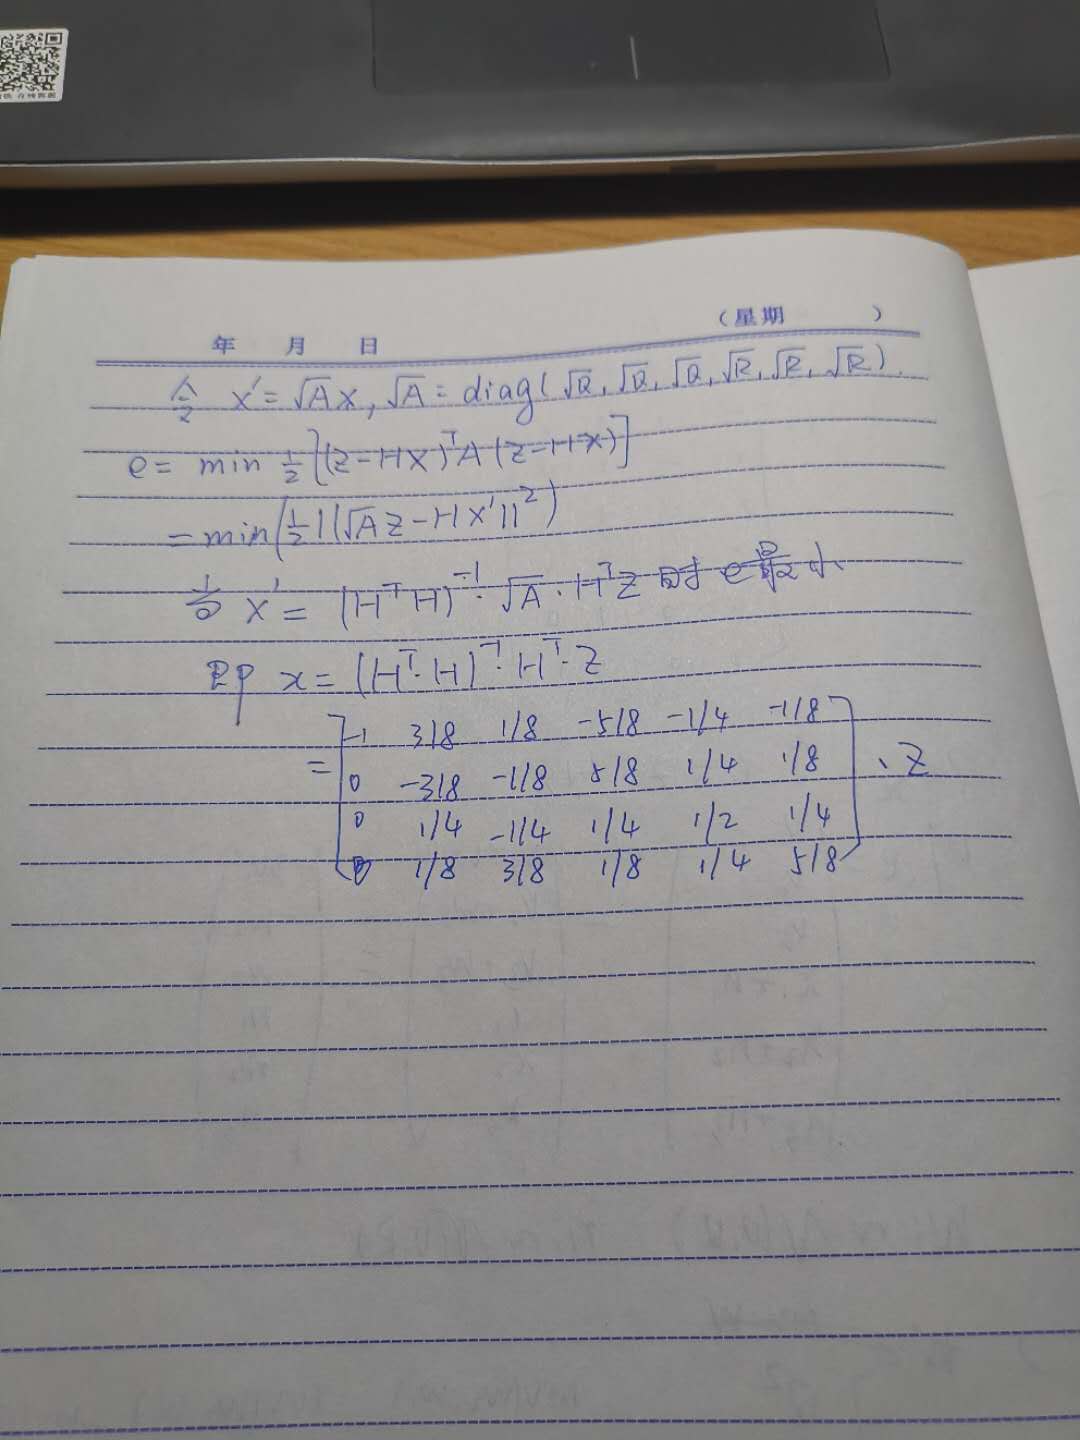 年 月 日 (星期 )
令 x' = √A x, √A = diag(√Q, √Q, √Q, √R, √R, √R).
e = min 1/2 [(z-Hx)ᵀA(z-Hx)]
= min(1/2 ||√A z - Hx'||²)
当 x' = (HᵀH)⁻¹·√A·Hᵀz 时 e最小
即 x = (Hᵀ·H)⁻¹·Hᵀ·z
-1 3/8 1/8 -5/8 -1/4 -1/8
= 0 -3/8 -1/8 5/8 1/4 1/8 · z
0 1/4 -1/4 1/4 1/2 1/4
0 1/8 3/8 1/8 1/4 5/8